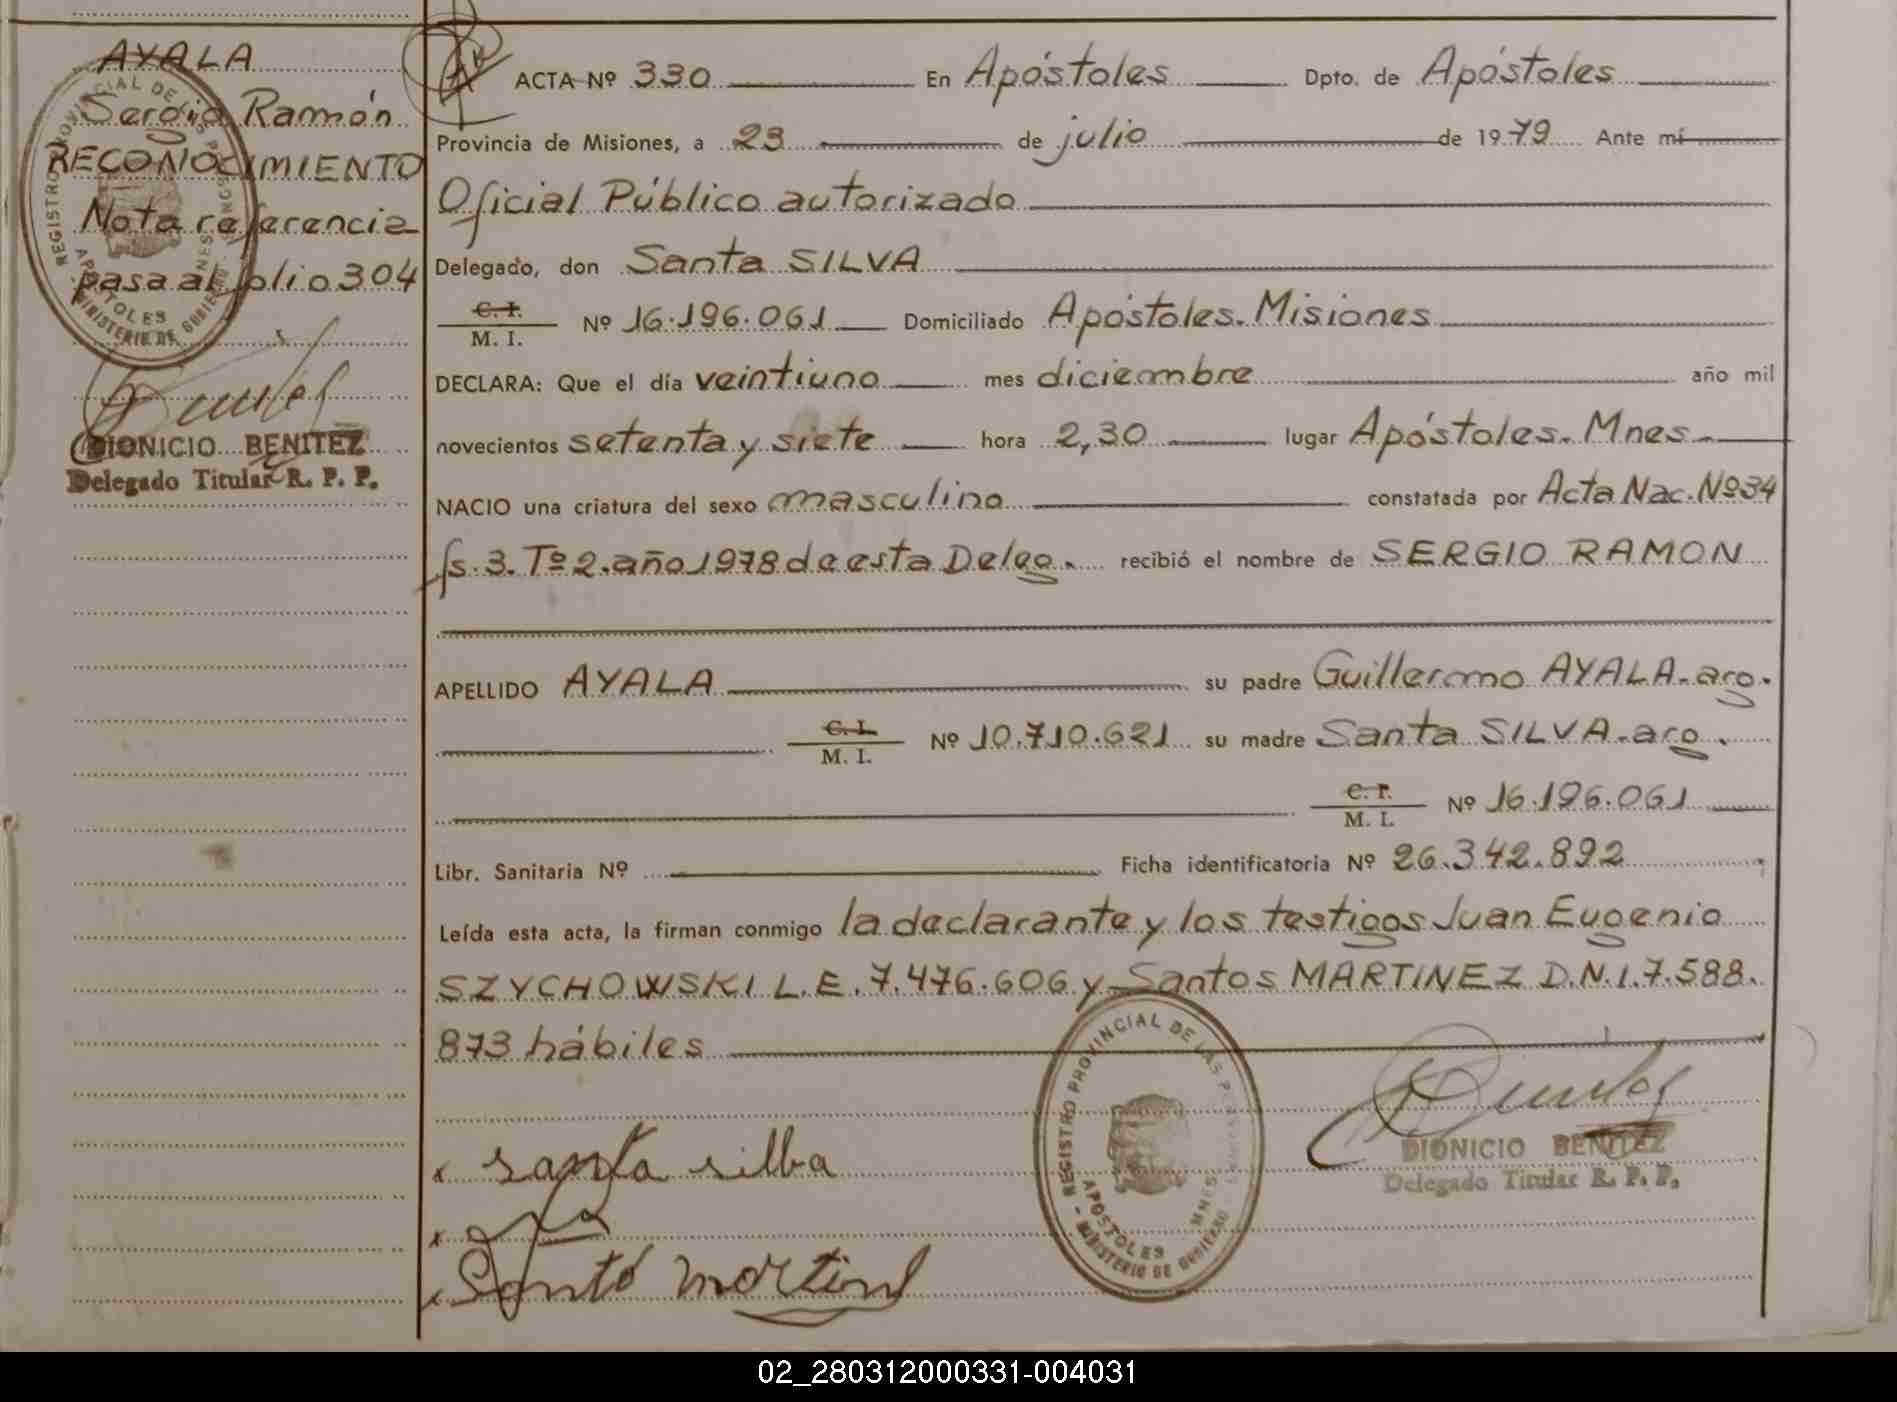 AYALA
Sergio Ramón
RECONOCIMIENTO
Nota referencia
pasa al folio 304
DIONICIO BENITEZ
Delegado Titular R. P. P.
ACTA Nº 330 En Apóstoles Dpto. de Apóstoles
Provincia de Misiones, a 23 de julio de 1979 Ante mí
Oficial Público autorizado
Delegado, don Santa SILVA
C. I.
M. I. Nº 16.196.061 Domiciliado Apóstoles. Misiones
DECLARA: Que el día veintiuno mes diciembre año mil
novecientos setenta y siete hora 2,30 lugar Apóstoles. Mnes.
NACIO una criatura del sexo masculino constatada por Acta Nac. Nº 34
fs. 3. Tº 2. año 1978 de esta Deleg. recibió el nombre de SERGIO RAMON
APELLIDO AYALA su padre Guillermo AYALA. arg.
C. I.
M. I. Nº 10.710.621 su madre Santa SILVA. arg.
C. I.
M. I. Nº 16.196.061
Libr. Sanitaria Nº Ficha identificatoria Nº 26.342.892
Leída esta acta, la firman conmigo la declarante y los testigos Juan Eugenio
SZYCHOWSKI L.E. 7.476.606 y Santos MARTINEZ D.N.I. 7.588.
873 hábiles
x santa silba
x
x Santo Martine
REGISTRO PROVINCIAL DE LAS PERSONAS
APOSTOLES MNES.
MINISTERIO DE GOBIERNO
DIONICIO BENITEZ
Delegado Titular R. P. P.
02_280312000331-004031